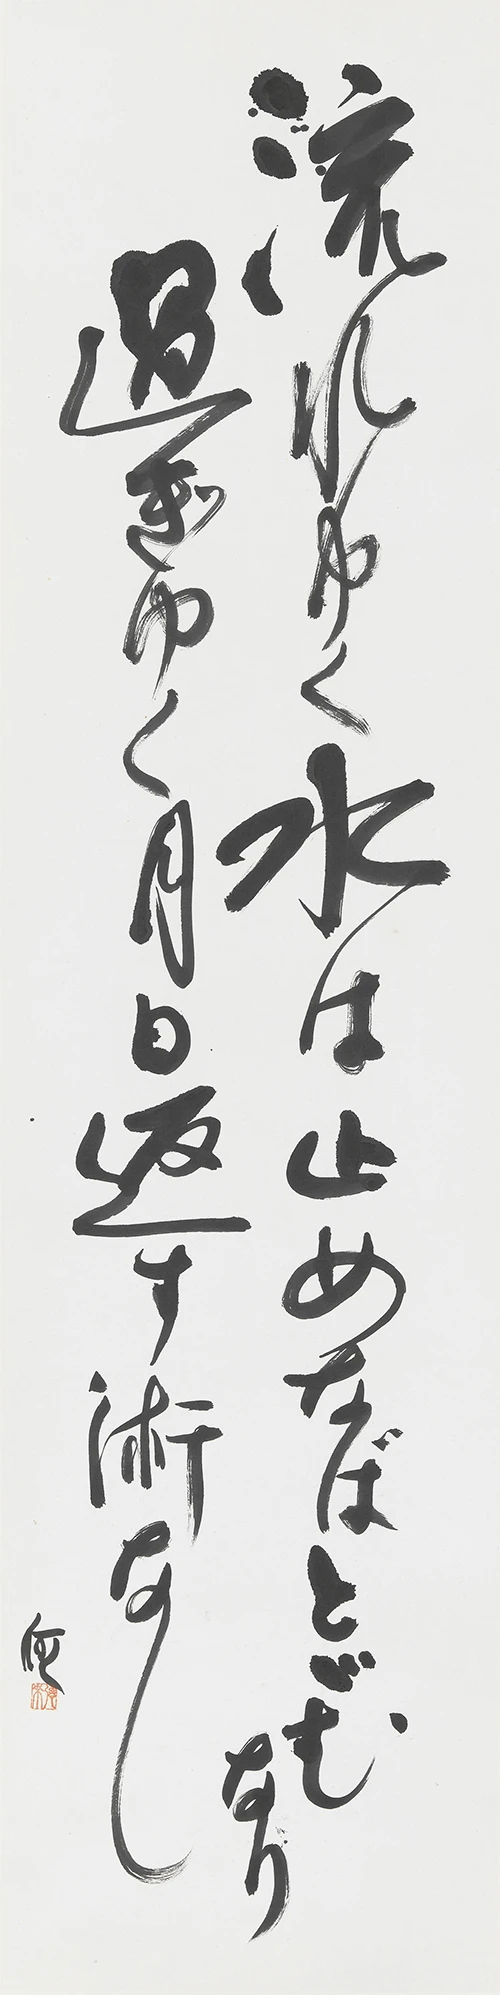 流れゆく水は止めなばとどむなり
過ぎゆく月日返す術なし